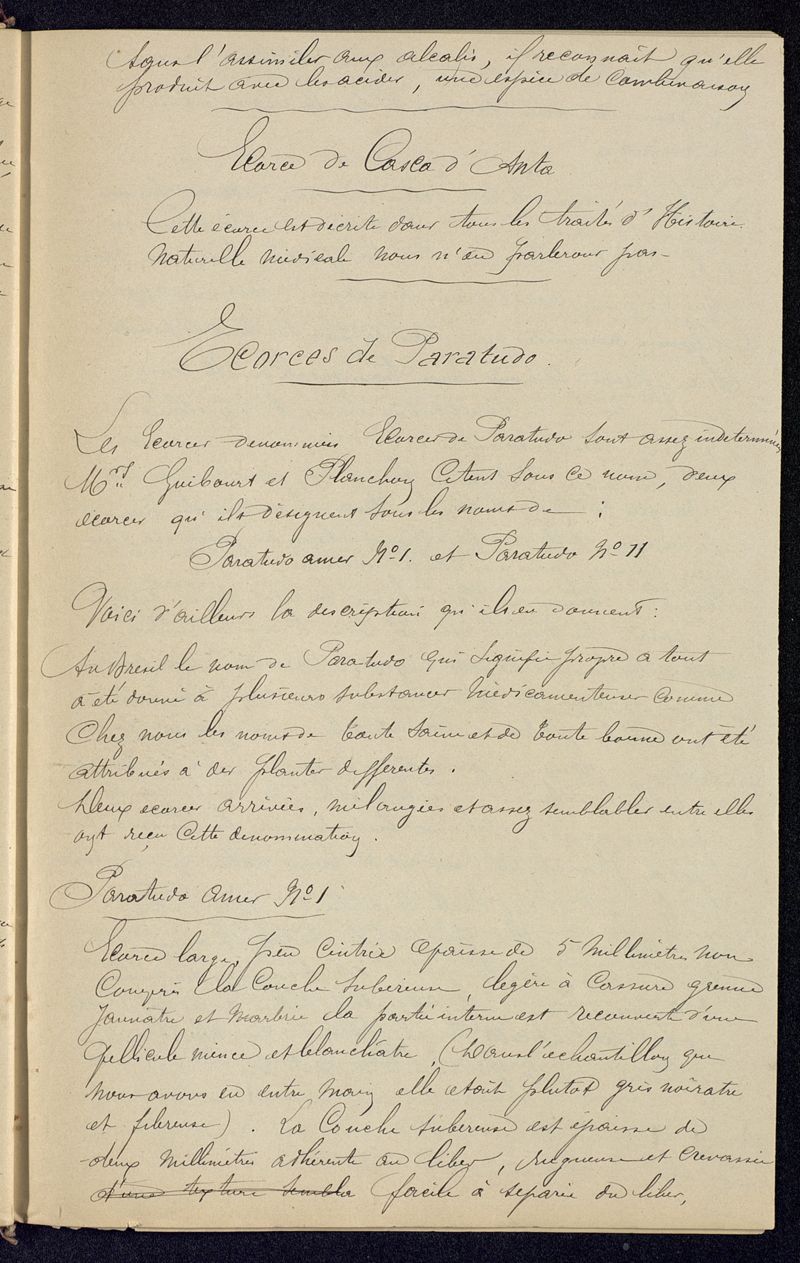 sans l'assimiler aux alcalis, il reconnait qu'elle
produit avec les acides, une espèce de combinaison
Ecorce de Casca d'Anta
Cette écorce est décrite dans tous les traités d'Histoire
Naturelle Médicale nous n'en parlerons pas-
Ecorces de Paratudo.
Les Ecorces denommées Ecorces de Paratudo sont assez indeterminées
Mrs Guibourt et Planchon citent sous ce nom, deux
écorces qu'ils désignent sous les noms de :
Paratudo amer No 1. et Paratudo No 11
Voici d'ailleurs la description qu'ils en donnent :
Au Bresil le nom de Paratudo qui signifie propre a tout
a été donné à plusieurs substances médicamenteuses comme
Chez nous les noms de toute saine et de toute bonne ont été
attribués à des plantes differentes.
Deux ecorces arrivées, mélangées et assez semblables entre elles
ont reçu cette denomination.
Paratudo amer No 1
Ecorce large, peu cintrée épaisse de 5 millimètres non
compris la couche subéreuse, legère à cassure grenue
jaunâtre et marbrée la partie interne est recouverte d'une
pellicule mince et blanchâtre, (Dans l'echantillon que
nous avons eu entre main elle etait plutot gris noirâtre
et fibreuse). La couche subereuse est épaisse de
deux millimètres adhérente au liber, rugueuse et crevassée
d'une texture sembla facile à separée du liber,